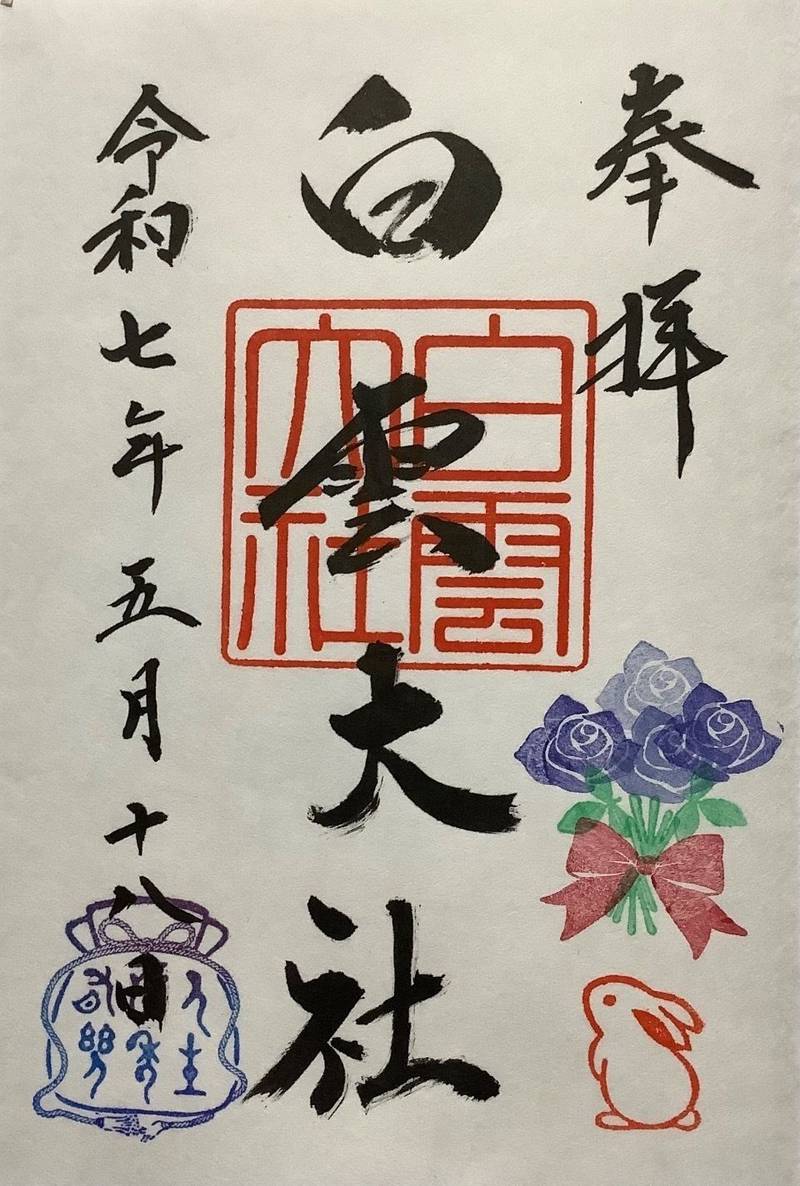 奉拝
白雲大社
白雲大社
令和七年五月十八日